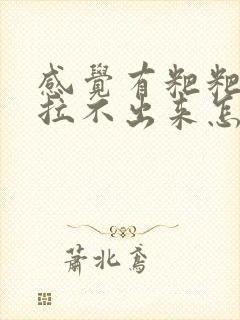 感覺有粑粑
拉不出来怎
蕭北鳶